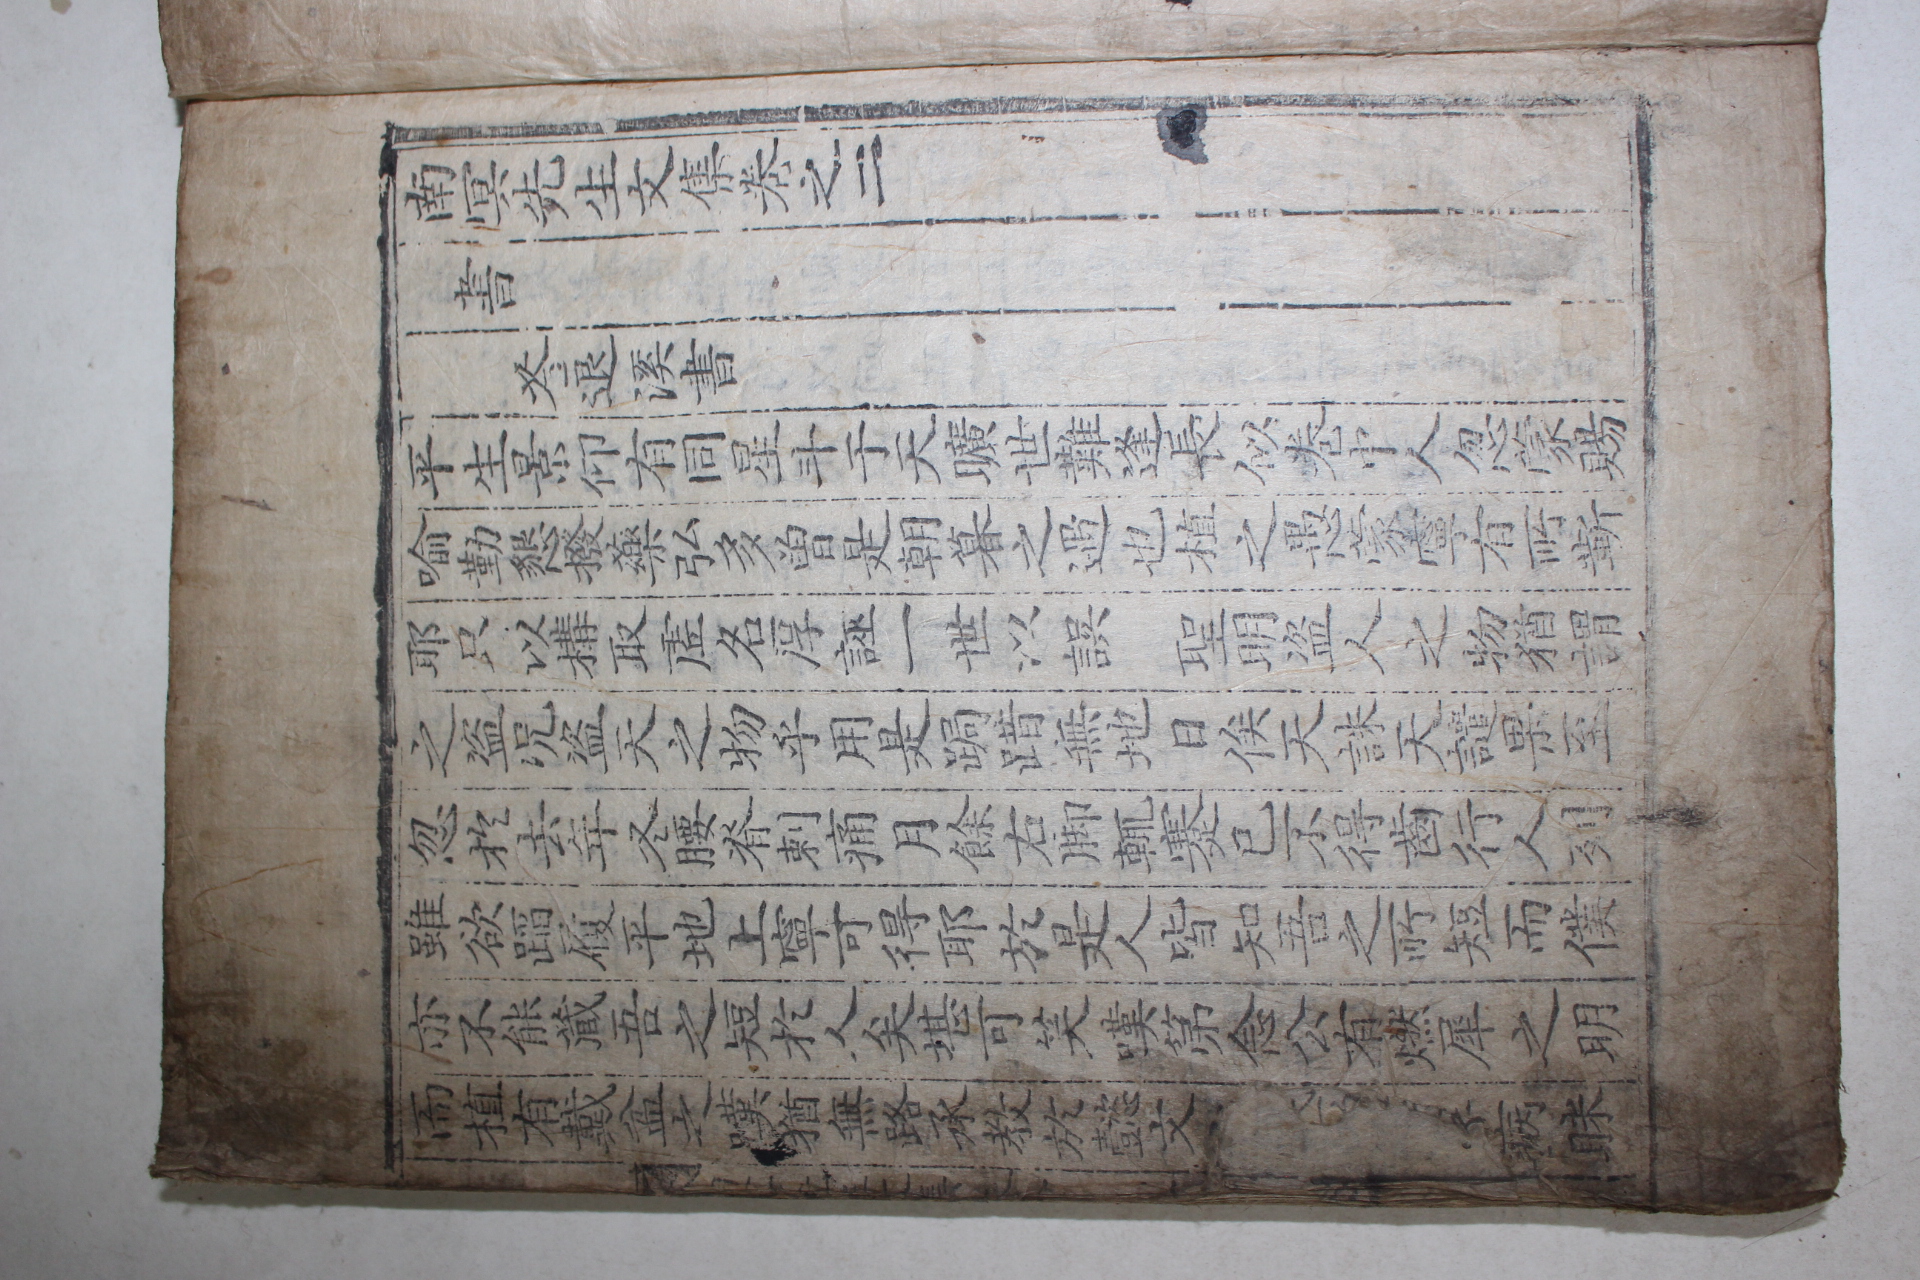 南冥先生文集卷之二
書
答退溪書
平生景仰有同星斗于天曠世難逢長似卷中人忽蒙賜
喻勤懇撥藥弘多曾是朝暮之遇也植之愚蒙寧有所蘄
耶只以構取虛名厚誣一世以誤 聖明盜人之物猶謂
之盜况盜天之物乎用是跼蹐無地日俟天誅天譴果至
忽於去年冬腰脊刺痛月餘右脚輒蹇已不得齒行人列
雖欲蹈履平地上寧可得耶於是人皆知吾之所短而僕
亦不能藏吾之短於人矣堪可笑嘆第念公有燃犀之明
而植有戴盆之嘆猶無路承教於懿文 病眛